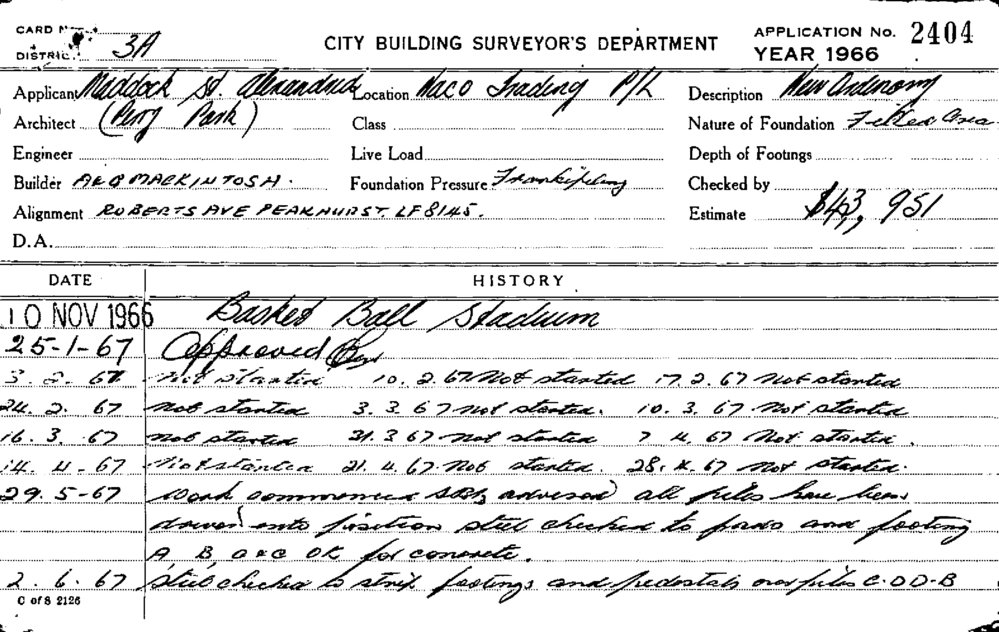 CARD
DISTRICT 3A
CITY BUILDING SURVEYOR'S DEPARTMENT
APPLICATION No. 2404
YEAR 1966
Applicant Maddock St. Alexandria Location Naco Trading P/L Description New
Architect (Perry Park) Class Nature of Foundation Filled Area
Engineer Live Load Depth of Footings
Builder A & G MACKINTOSH. Foundation Pressure Frankipiling Checked by
Alignment ROBERTS AVE PEAKHURST. LF 8145. Estimate $43,951
D.A.
DATE HISTORY
10 NOV 1966 Basket Ball Stadium
25-1-67 Approved
3. 2. 67 Not started 10. 2. 67 Not started 17 2. 67 Not started
24. 2. 67 Not started 3. 3. 67 not started. 10. 3. 67 Not started
16. 3. 67 not started 31. 3 67 not started 7 4. 67 Not started.
14. 4. 67 Not started 21. 4. 67 Not started. 28. 4. 67 Not started.
29. 5-67 Work commenced advised all piles have been
driven into position steel checked to pads and footing
A B & C OK for concrete.
2. 6. 67 Steel checked to strip footings and pedestals over piles C. D D-B
C of S 2126